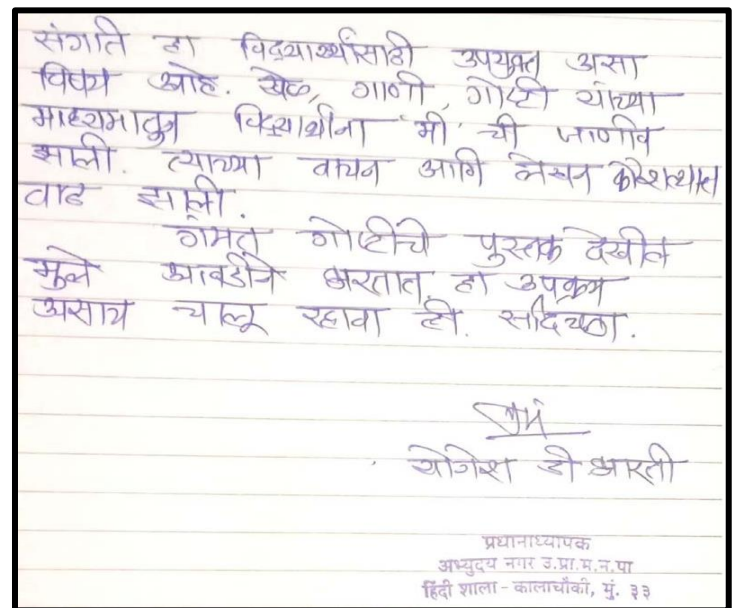 संगति हा विद्यार्थ्यांसाठी उपयुक्त असा
विषय आहे. खेळ, गाणी, गोष्टी यांच्या
माध्यमातून विद्यार्थीना 'मी' ची जाणीव
झाली. त्याच्या वाचन आणि लेखन कौशल्यात
वाढ झाली.
गंमत गोष्टींचे पुस्तक देखील
मुले आवडीने भरतात, हा उपक्रम
असाच चालू रहावा ही सदिच्छा.
योगेश डी भारती
प्रधानाध्यापक
अभ्युदय नगर उ.प्रा.म.न.पा
हिंदी शाला - कालाचौकी, मुं. ३३